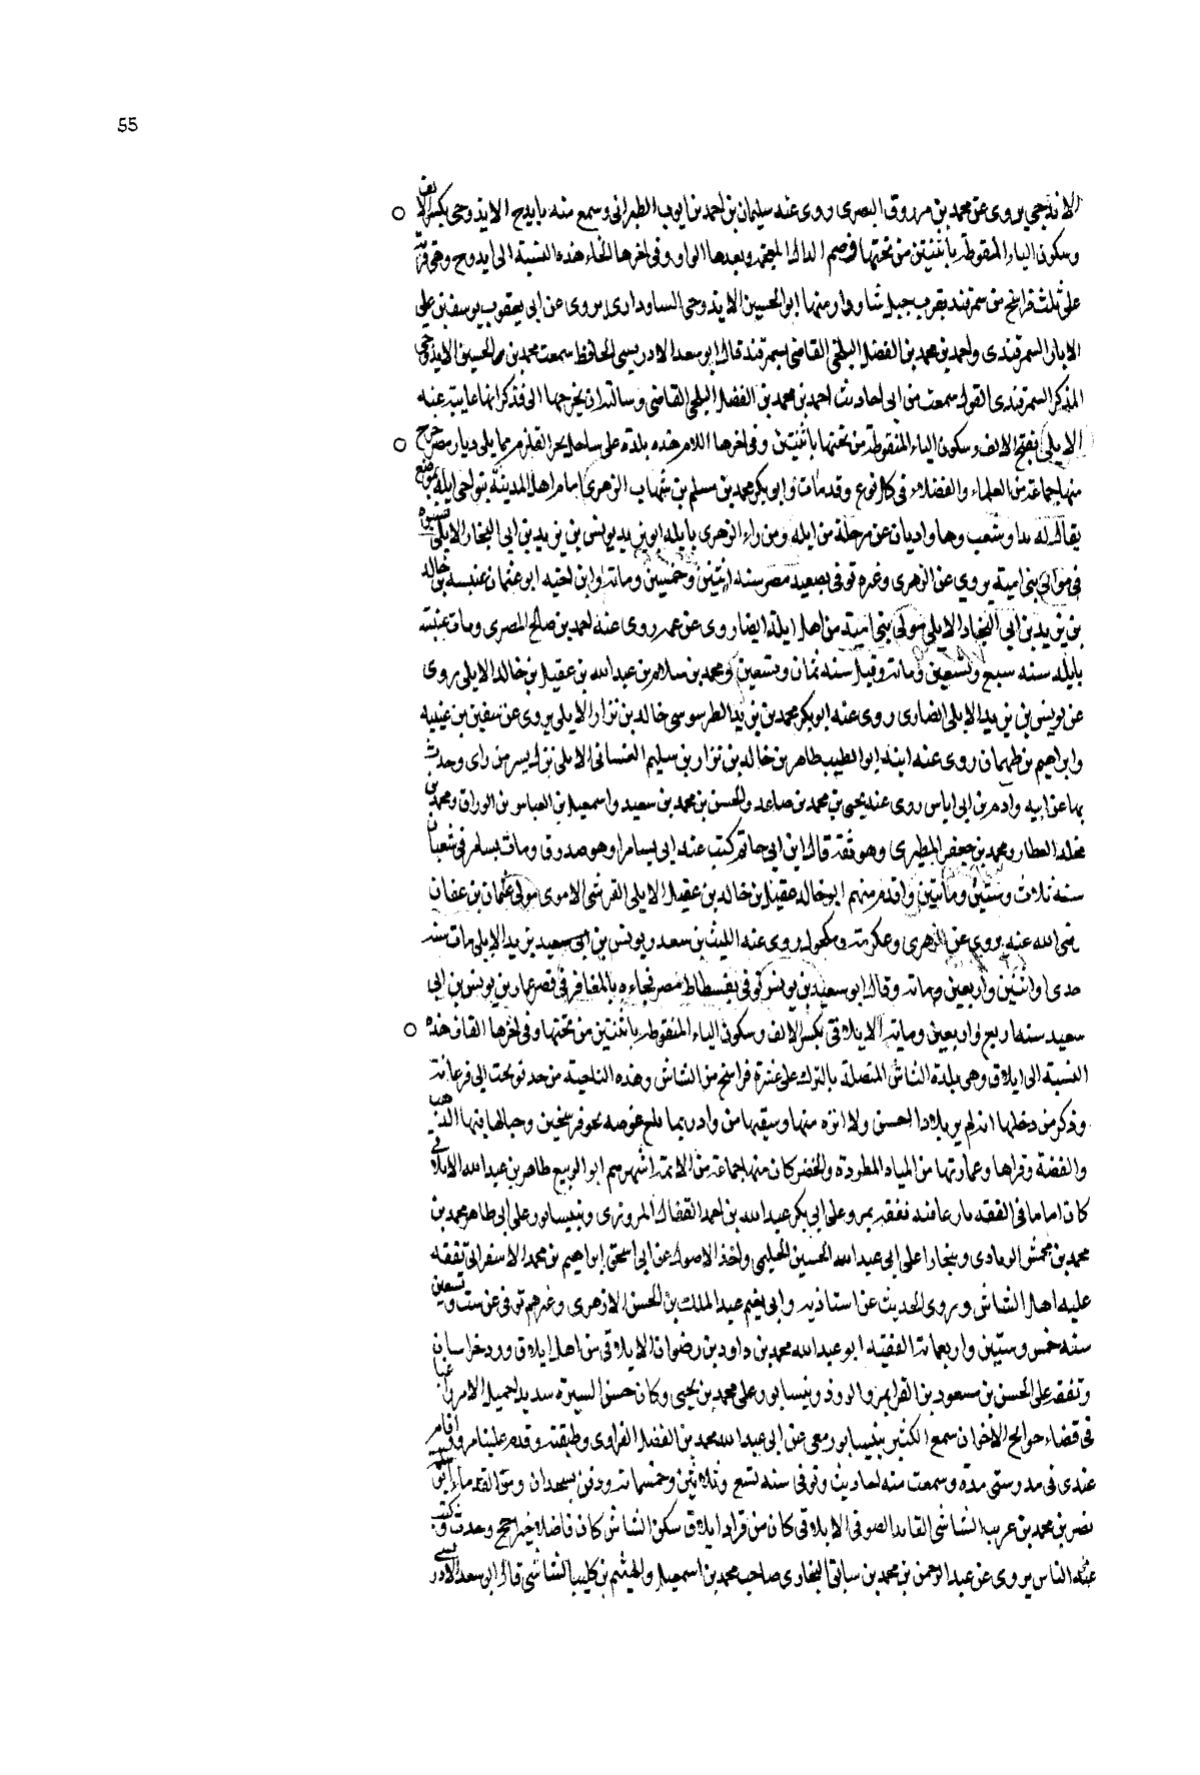 55
الايذجي يروى عن محمد بن مرزوق البصرى روى عنه سليمان بن احمد بن ايوب الطبرانى وسمع منه بايذج الايذوخى بكسر الالف
وسكون الياء المنقوطة باثنتين من تحتها وضم الذال المعجمة وبعدها الواو وفى اخرها الخاء هذه النسبة الى ايذوخ وهى قرية
على ثلث فراسخ من سمرقند بقرب جبل شاودار منها ابو الحسين الايذوخى الساودارى يروى عن ابى يعقوب يوسف بن على
الابار السمرقندى واحمد بن محمد بن الفضل البلخى القاضى بسمرقند قال ابو سعد الادريسى الحافظ سمعت محمد بن الحسين الايذوخى
المذكر السمرقندى القول سمعت من ابى احاديث احمد بن محمد بن الفضل البلخى القاضى وسالته ان يخرجها الى فذكر انها غايبة عنه
الايلى بفتح الالف وسكون الياء المنقوطة من تحتها باثنتين وفى اخرها اللام هذه بلدة على ساحل بحر القلزم مما يلى ديار مصر خرج
منها جماعة من العلماء والفضلاء فى كل نوع وقد مات ابو بكر محمد بن مسلم بن شهاب الزهرى امام اهل المدينة بنواحى ايله بموضع
يقال له بدا وشعب وها واديان عن مرحلة من ايله ومن راء الزهرى بايله ابو يزيد يونس بن يزيد بن ابى النجار الايلى
فى موالى بنى امية يروي عن الزهرى وغره توفى بصعيد مصر سنه اثنتين وخمسين ومائة وابن اخيه ابو عثمان عنبسه بن خالد
بن يزيد بن ابي النجاد الايلى مولى بنى امية من اهل ايلة ايضا روى عن عمه روى عنه احمد بن صالح المصرى ومات عنبسة
بايله سنه سبع وتسعين ومائة وقيل سنه ثمان وتسعين ومحمد بن سلام بن عبد الله بن عقيل بن خالد الايلى روى
عن يونس بن يزيد الايلى ايضا روى عنه ابو بكر محمد بن يزيد الطرسوسى خالد بن نزار الايلى يروى عن سفين بن عيينه
وابراهيم بن طهمان روى عنه ابنه ابو الطيب طاهر بن خالد بن نزار بن سليم الغسانى الايلى نزل بسر من راى وحدث
بها عن ابيه وادم بن ابى اياس روى عنه يحيى بن محمد بن صاعد والحسن بن محمد بن سعيد واسمعيل بن العباس بن الوراق ومحمد بن
مخلد العطار ومحمد بن جعفر المطيرى وهو ثقة قال ابن ابى حاتم كتب عنه ابى بسامرا وهو صدوق ومات بسامر فى شعبان
سنه ثلاث وستين ومأتين واقدم منهم ابو خالد عقيل بن خالد بن عقيل الايلى القرشى الاموى مولى عثمان بن عفان
ضى الله عنه يروى عن الزهرى وعكرمة ومكحول روى عنه الليث بن سعد ويونس بن ابى سعيد يزيد الايلى مات سنه
حدى او اثنتين واربعين ومائة وقال ابو سعيد بن يونس توفى بفسطاط مصر فجاءه بالمغافر فى قصر عمار بن يونس بن ابى
سعيد سنه اربع واربعين ومائة الايلاقى بكسر الالف وسكون الياء المنقوطه باثنتين من تحتها وفى اخرها القاف هذه
النسبة الى ايلاق وهى بلدة الشاش المتصلة بالترك على عشرة فراسخ من الشاش وهذه الناحية من حد نوبخت الى فرغانة
وذكر من دخلها انه لم ير بلادا احسن ولا انزه منها وسقيها من واد ربما بلغ عرضه نحو فرسخين وجبالها فيها الذهب
والفضة وقراها وعمارتها من المياه المطردة والخضر كان منها جماعة من الائمة اشهرهم ابو الربيع طاهر بن عبد الله الايلاقى
كان اماما فى الفقه بارعا فيه تفقه بمرو على ابى بكر عبد الله بن احمد القفال المروزى وبنيسابور على ابى طاهر محمد بن
محمد بن محمش الزيادى وببخارا على ابى عبد الله الحسين الحليمى واخذ الاصول عن ابى اسحق ابراهيم بن محمد الاسفراينى تفقه
عليه اهل الشاش وروى الحديث عن استاذيه وابى نعيم عبد الملك بن الحسن الازهرى وغيرهم توفى عن ست وتسعين
سنه خمس وستين واربعمائة الفقيه ابو عبد الله محمد بن داود بن رضوان الايلاقى من اهل ايلاق ورد خراسان
وتفقه على الحسن بن مسعود بن الفرا بمرو الروذ ونيسابور على محمد بن يحيى وكان حسن السيرة سديدا جميل الامر
فى قضاء حوايج الاخوان سمع الكثير بنيسابور معى عن ابى عبد الله محمد بن الفضل الفراوى وطبقته وقدم علينا مرو واقام
عندى فى مدرستى مدة وسمعت منه احاديث وتوفى سنه تسع وثلاثين وخمسمائة ودفن بسجدان ومن القدماء
نصر بن محمد بن غريب الشاشى القايد الصوفى الايلاقى كان من قراء ايلاق سكن الشاش كان فاضلا خيرا حج وحدث وكتب
عنه الناس يروى عن عبد الرحمن بن محمد بن ساباق البخارى صاحب محمد بن اسمعيل والهيثم بن كليب الشاشى قال ابو سعد الادريسى